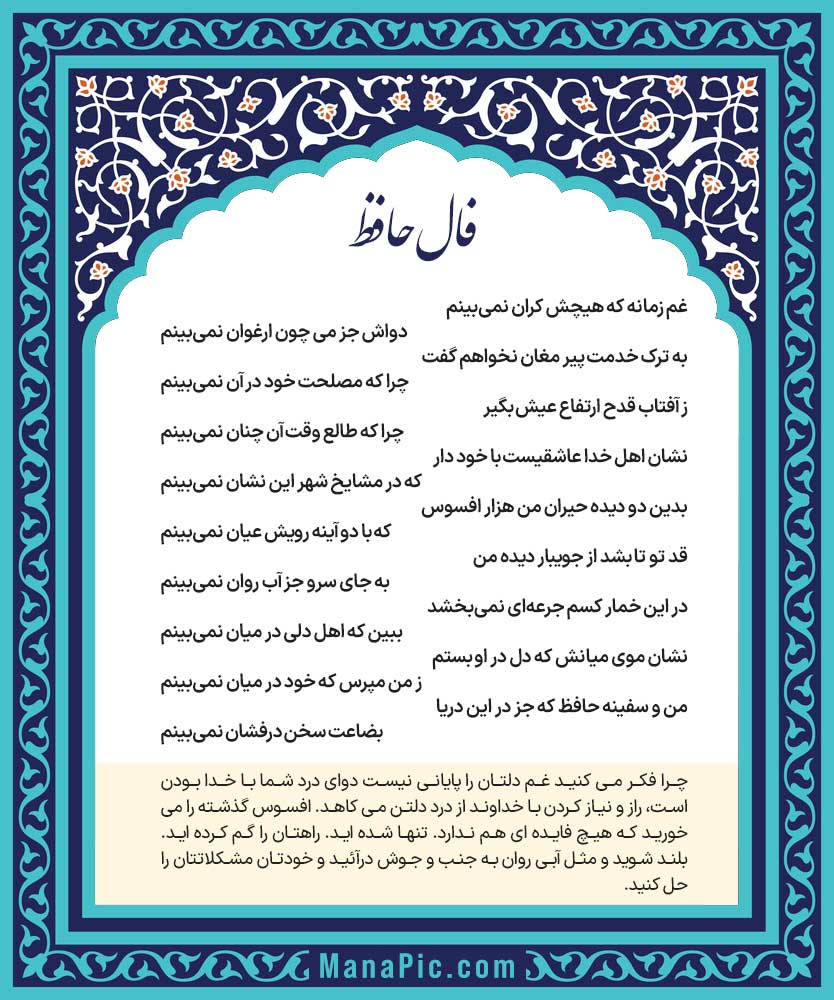 فال حافظ
غم زمانه که هیچش کران نمی‌بینم
دواش جز می چون ارغوان نمی‌بینم
به ترک خدمت پیر مغان نخواهم گفت
چرا که مصلحت خود در آن نمی‌بینم
ز آفتاب قدح ارتفاع عیش بگیر
چرا که طالع وقت آن چنان نمی‌بینم
نشان اهل خدا عاشقیست با خود دار
که در مشایخ شهر این نشان نمی‌بینم
بدین دو دیده حیران من هزار افسوس
که با دو آینه رویش عیان نمی‌بینم
قد تو تا بشد از جویبار دیده من
به جای سرو جز آب روان نمی‌بینم
در این خمار کسم جرعه‌ای نمی‌بخشد
ببین که اهل دلی در میان نمی‌بینم
نشان موی میانش که دل در او بستم
ز من مپرس که خود در میان نمی‌بینم
من و سفینه حافظ که جز در این دریا
بضاعت سخن درفشان نمی‌بینم
چرا فکر می کنید غم دلتان را پایانی نیست دوای درد شما با خدا بودن
است، راز و نیاز کردن با خداوند از درد دلتن می کاهد. افسوس گذشته را می
خورید که هیچ فایده ای هم ندارد. تنها شده اید. راهتان را گم کرده اید.
بلند شوید و مثل آبی روان به جنب و جوش درآئید و خودتان مشکلاتتان را
حل کنید.
ManaPic.com